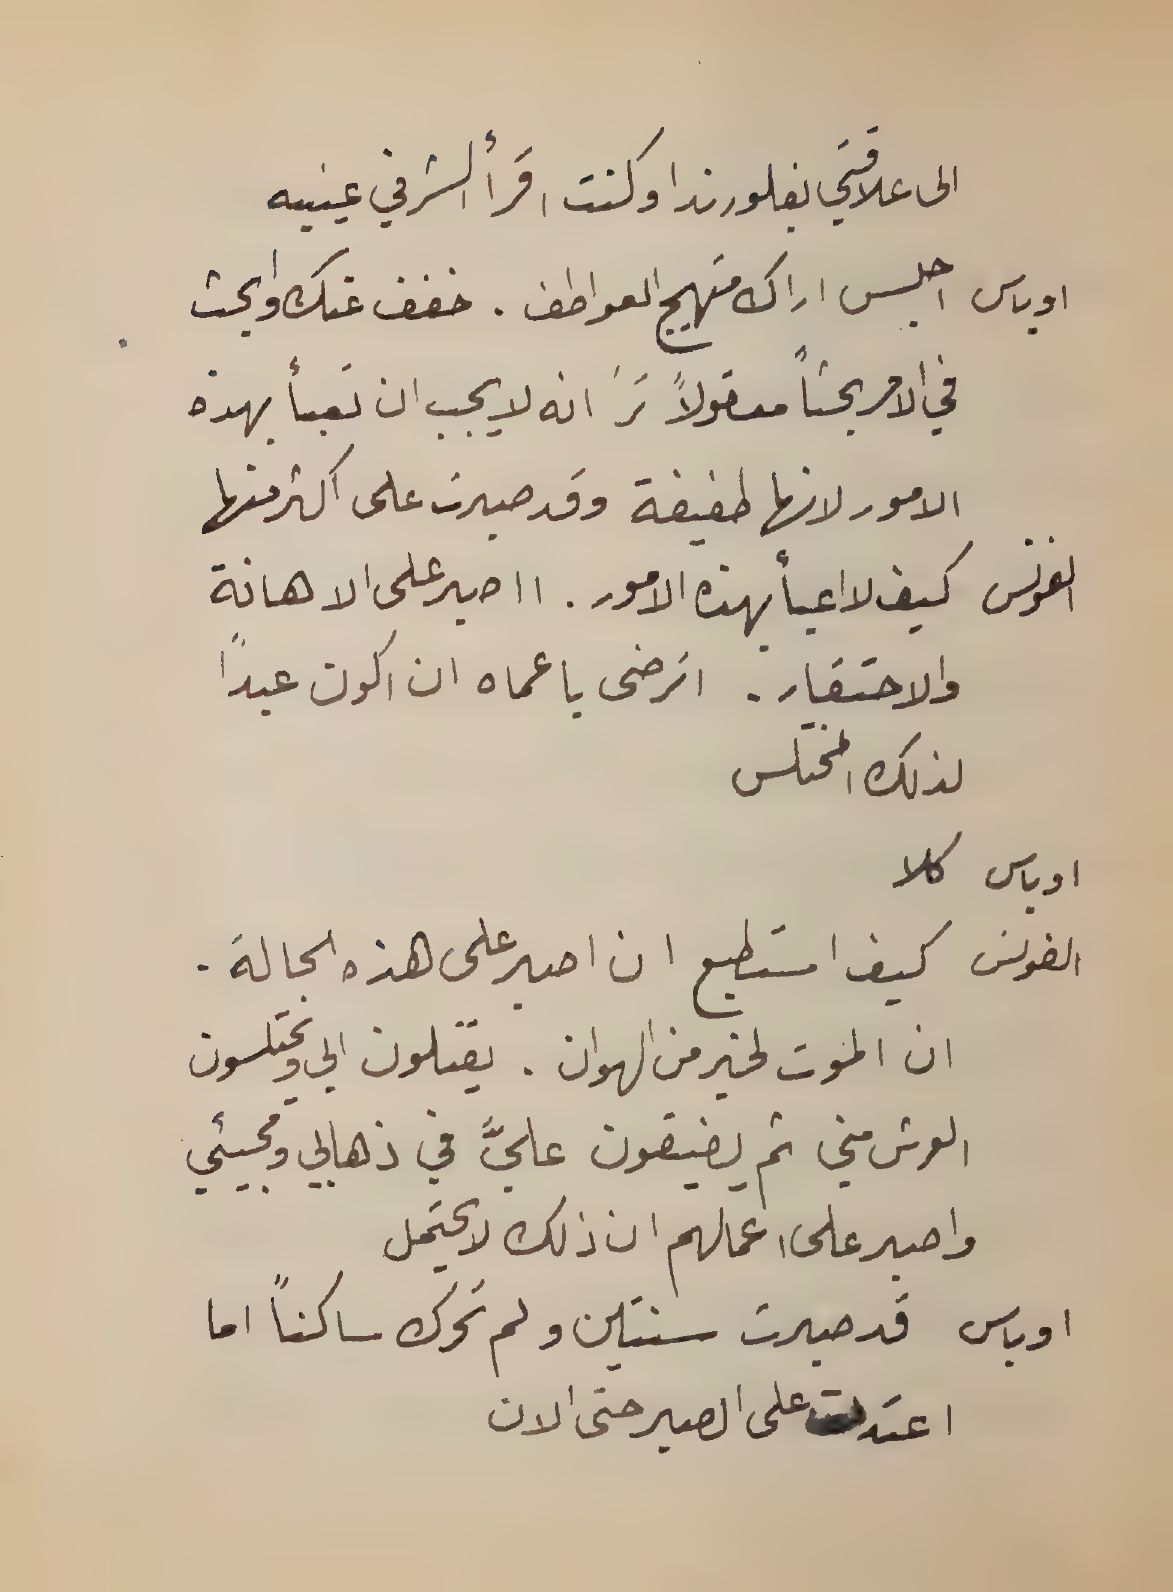 الى علاقتي بفلورندا وكنت اقرأ الشر في عينيه
اوباس اجلس اراك متهيج العواطف . خفف عنك وابحث
في الامر بحثاً معقولاً تر انه لا يجب ان تعبأ بهذه
الامور لانها طفيفة وقد صبرت على اكثر منها
الفونس كيف لا اعبأ بهذه الامور . ااصبر على الاهانة
والاحتقار . اترضى يا عماه ان اكون عبداً
لذلك المختلس
اوباس كلا
الفونس كيف استطيع ان اصبر على هذه الحالة .
ان الموت لخير من الهوان . يقتلون ابي ويختلسون
العرش مني ثم يضيقون عليَّ في ذهابي ومجيئي
واصبر على اعمالهم ان ذلك لا يحتمل
اوباس قد صبرت سنتين ولم تحرك ساكناً اما
اعتدت على الصبر حتى الان